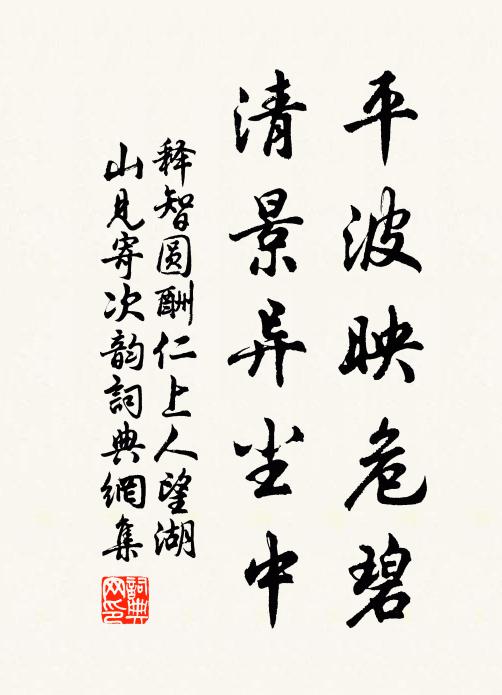 平波映危碧
清景异尘中
释智圆酬仁上人望湖
山见寄次韵词典網集
詞典網印